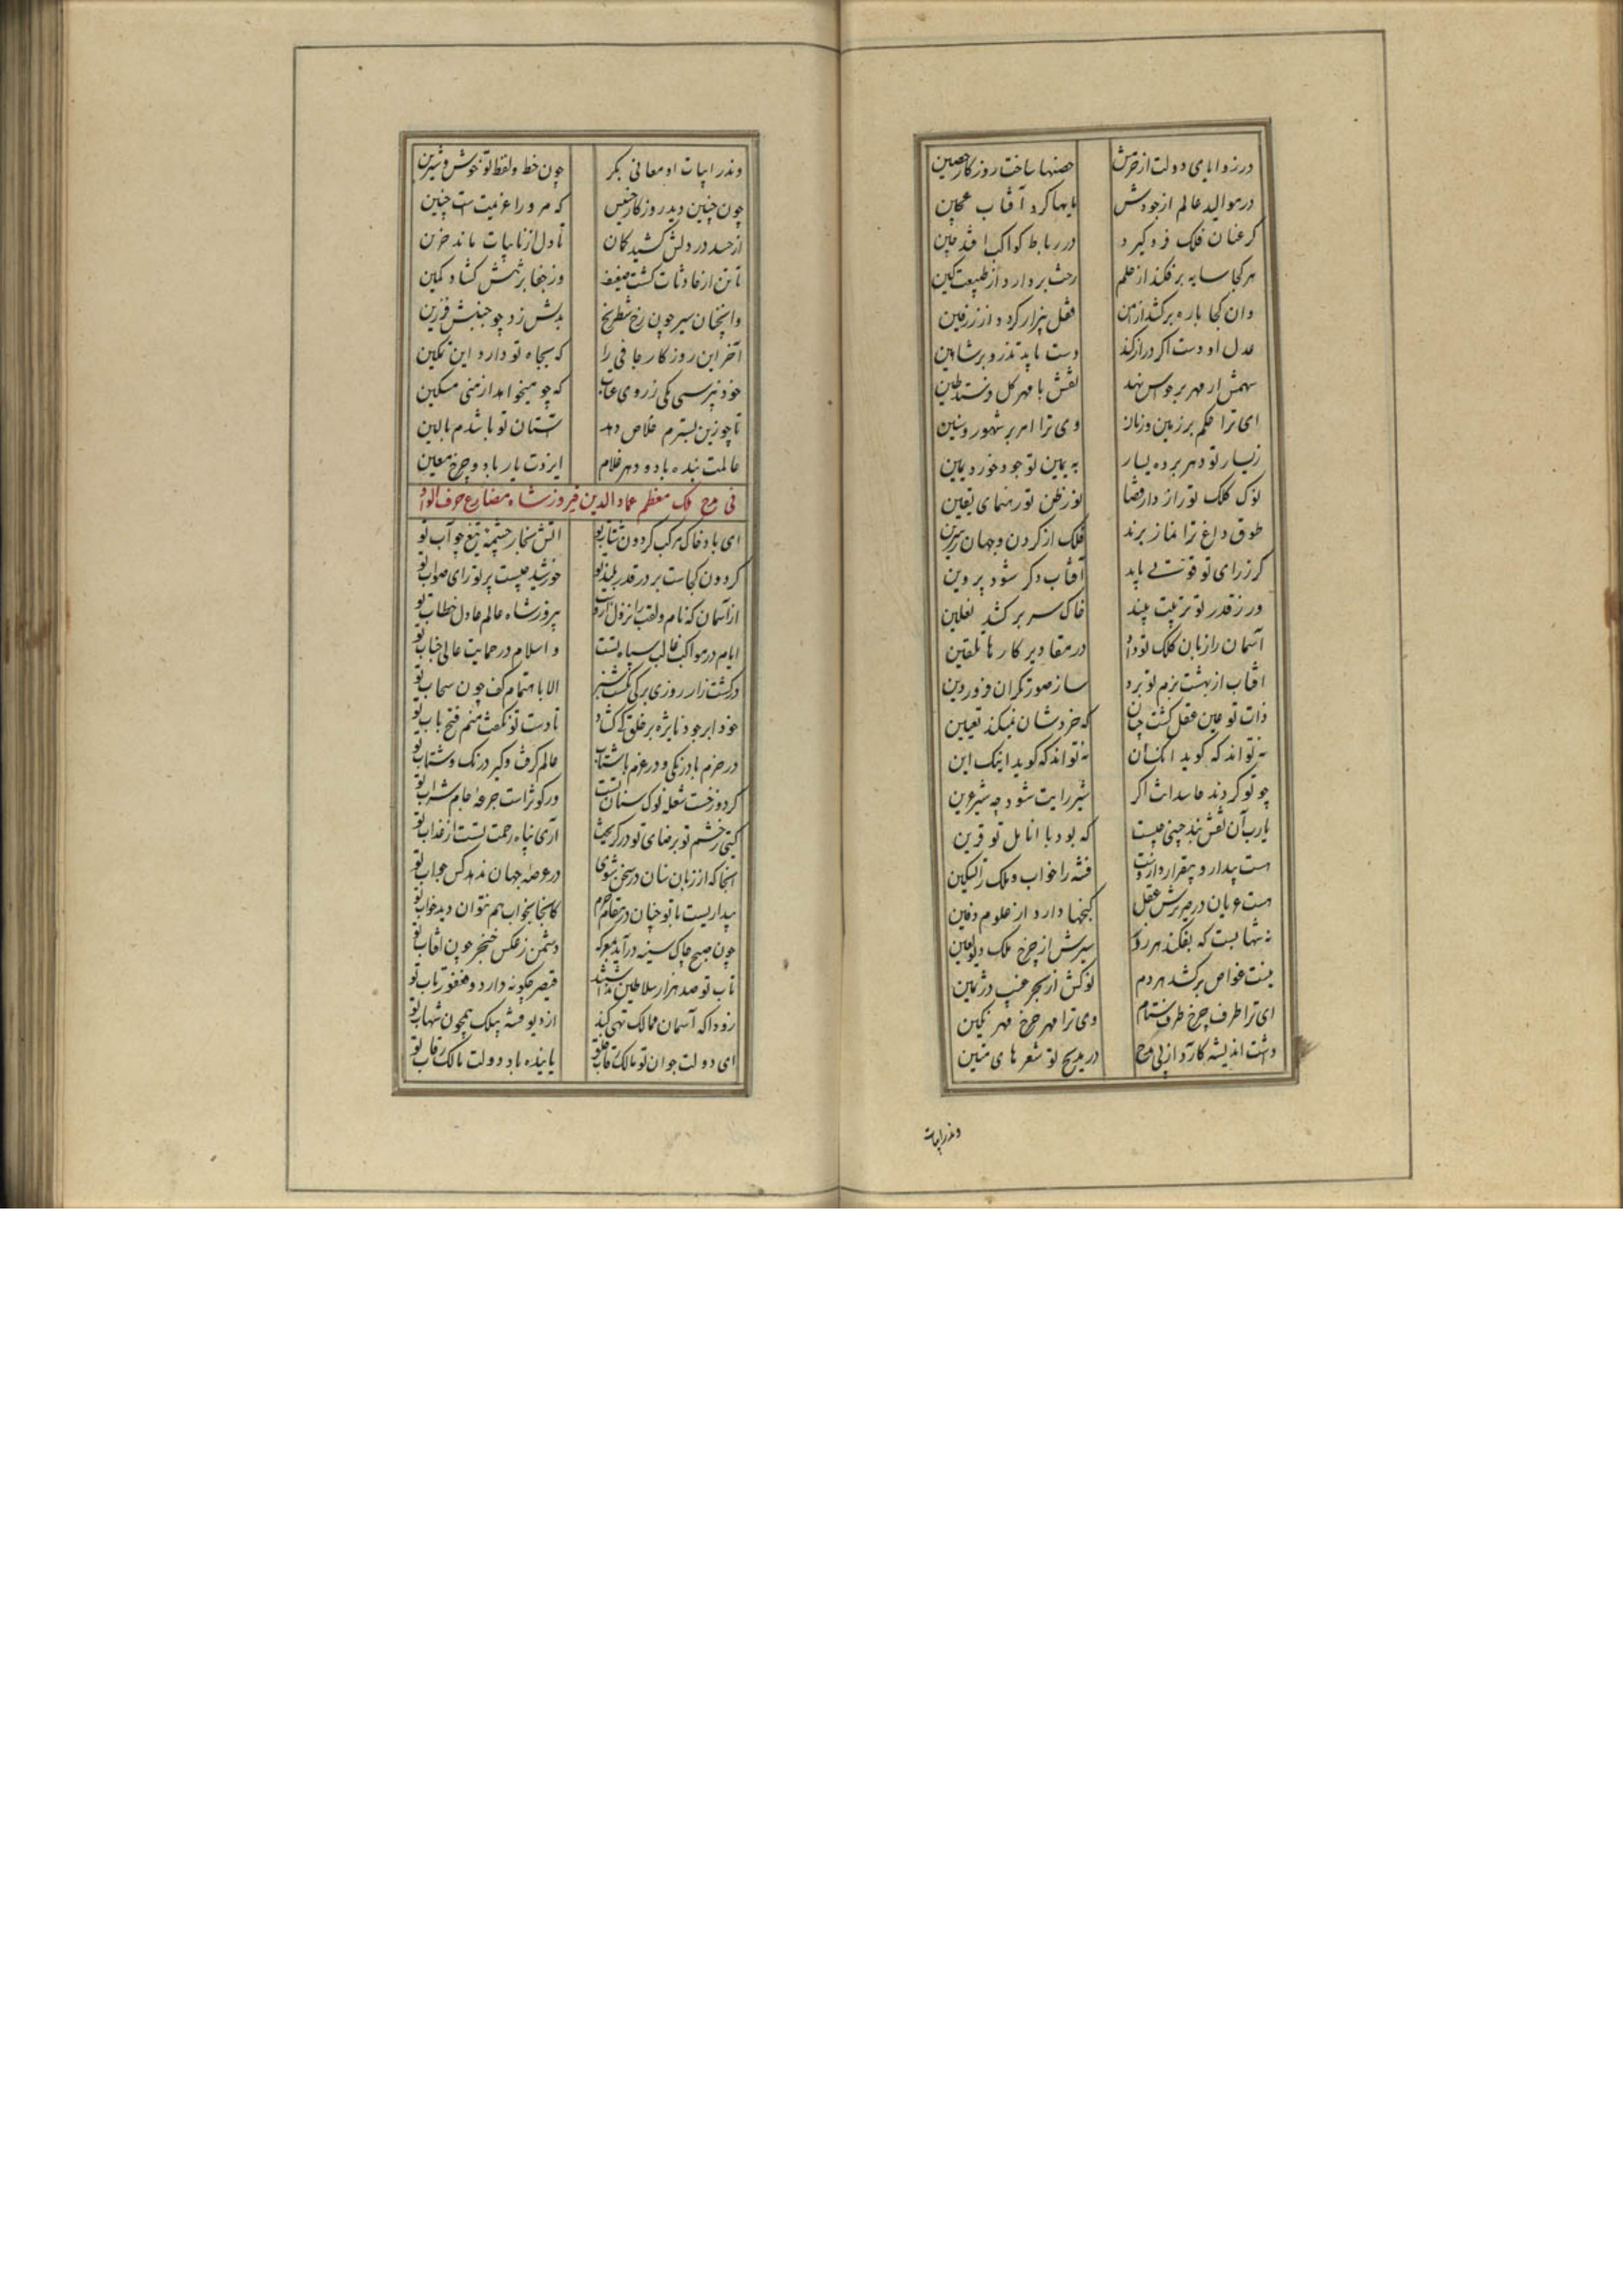 در زوایای دولت از حزمش حصنها ساخت روزگار حصین
در موالید عالم از جودش مایها کرد آفتاب عجین
کر عنان فلک فرو کیرد در رباط کواکب افتد چین
هر کجا سایه بر فکند از حلم رخت بردارد از طبیعت کین
وان کجا باره بر کشد از امن قفل بیزار کردد از زرفین
عدل او دست اکر دراز کند دست یابد تذرو بر شاهین
سهمش ار مهر بر حواس نهد نقش با مهر کل فرستد طین
ای ترا حکم بر زمین و زمان وی ترا امر بر شهور و سنین
ز یسار تو دهر برده یسار به یمین تو جود خورده یمین
نوک کلک تو رازدار قضا نور ظن تو رهنمای یقین
طوق داغ ترا نماز برند فلک از کردن و جهان ز سرین
کر ز رای تو قوتی یابد آفتاب دکر شود پروین
ور ز قدر تو تربیت بیند خاک سر بر کشد بعلیین
آسمان را زبان کلک تو داد در مقادیر کارها تلقین
آفتاب از بهشت بزم تو برد ساز صورتکران فروردین
ذات تو عین عقل کشت چنان که خردشان نمیکند تعیین
نه تواند که کوید انکت آن نه تواند که کوید اینک این
چو تو کردند حاسدانت اکر شیر رایت شود چو شیر عرین
یارب آن نقش بند چینی چیست که بود با انامل تو قرین
هست بیدار و بیقرار و ازوست فتنه را خواب و ملک را تسکین
هست عریان و در سرش عقل کنجها دارد از علوم دفین
نه شهابست که بفکند هر روز سیرش از چرخ ملک دیو لعین
نیست غواص برکشد هر دم نوکش از بحر غیب در ثمین
ای ترا طرف چرخ طرف ستام وی ترا مهر چرخ مهر نکین
داشت اندیشه کارد از پی مدح در مدیح تو شعرهای متین
وندر ابیات
وندر ابیات او معانی بکر چون خط و لفظ تو خوش و شیرین
چون چنین دید روزکار خسیس که مر ورا عزیمت است چنین
از حسد در دلش کشید کمان تا دل از نایبات ماند حزین
تا تن از حادثات کشت ضعیف وز جفا بر تنش کشاد کمین
وانچنان سیر چون رخ شطرنج بدلش زد چو جنبش فرزین
آخر این روزکار جافی را که بجاه تو دارد این تمکین
خود نپرسی یکی ز روی عتاب که چه میخواهد از منی مسکین
تا چو زین بسترم خلاص دهد آستان تو باشدم بالین
عالمت بنده باد و دهر غلام ایزدت یار باد و چرخ معین
فی مدح ملک معظم عماد الدین فیروز شاه مضارع حرف الواو
ای باد خاک مرکب کردون شتاب تو آتش بخار چشمه تیغ چو آب تو
کردون کجاست بر در قدر بلند تو خورشید چیست پرتو رای صواب تو
از آسمان که نام و لقب را نزول ازوست پیروز شاه عالم عادل خطاب تو
ایام در مواکب غالب سپاه تست و اسلام در حمایت عالی جناب تو
در کشت زار روزی برکی نکشت سبز الا باهتمام کف چون سحاب تو
خود ابر جود نایژه بر خلق کی کشاد تا دست تو نکفت منم فتح باب تو
در حزم با درنکی و در عزم با شتاب عالم کرفت و کیر درنک و شتاب تو
کر دوزخست شعله نوک سنان تست ور کوثر است جرعه جام شراب تو
کیتی ز خشم تو برضای تو در کریخت آری پناه رحمت تست از عذاب تو
آنجا که از زبان سنان در سخن شوی در عرصه جهان ندهد کس جواب تو
بیداریست با تو چنان در مقام حزم کانجا بخواب هم نتوان دید خواب تو
چون صبح چاک سینه درآید بمعرکه دشمن ز عکس خنجر چون آفتاب تو
تاب تو صد هزار سلاطین نداشتند قیصر چکونه دارد و فغفور تاب تو
زودا که آسمان ممالک تهی کند از دیو فتنه بیلک همچون شهاب تو
ای دولت جوان تو مالک رقاب خلق پاینده باد دولت مالک رقاب تو